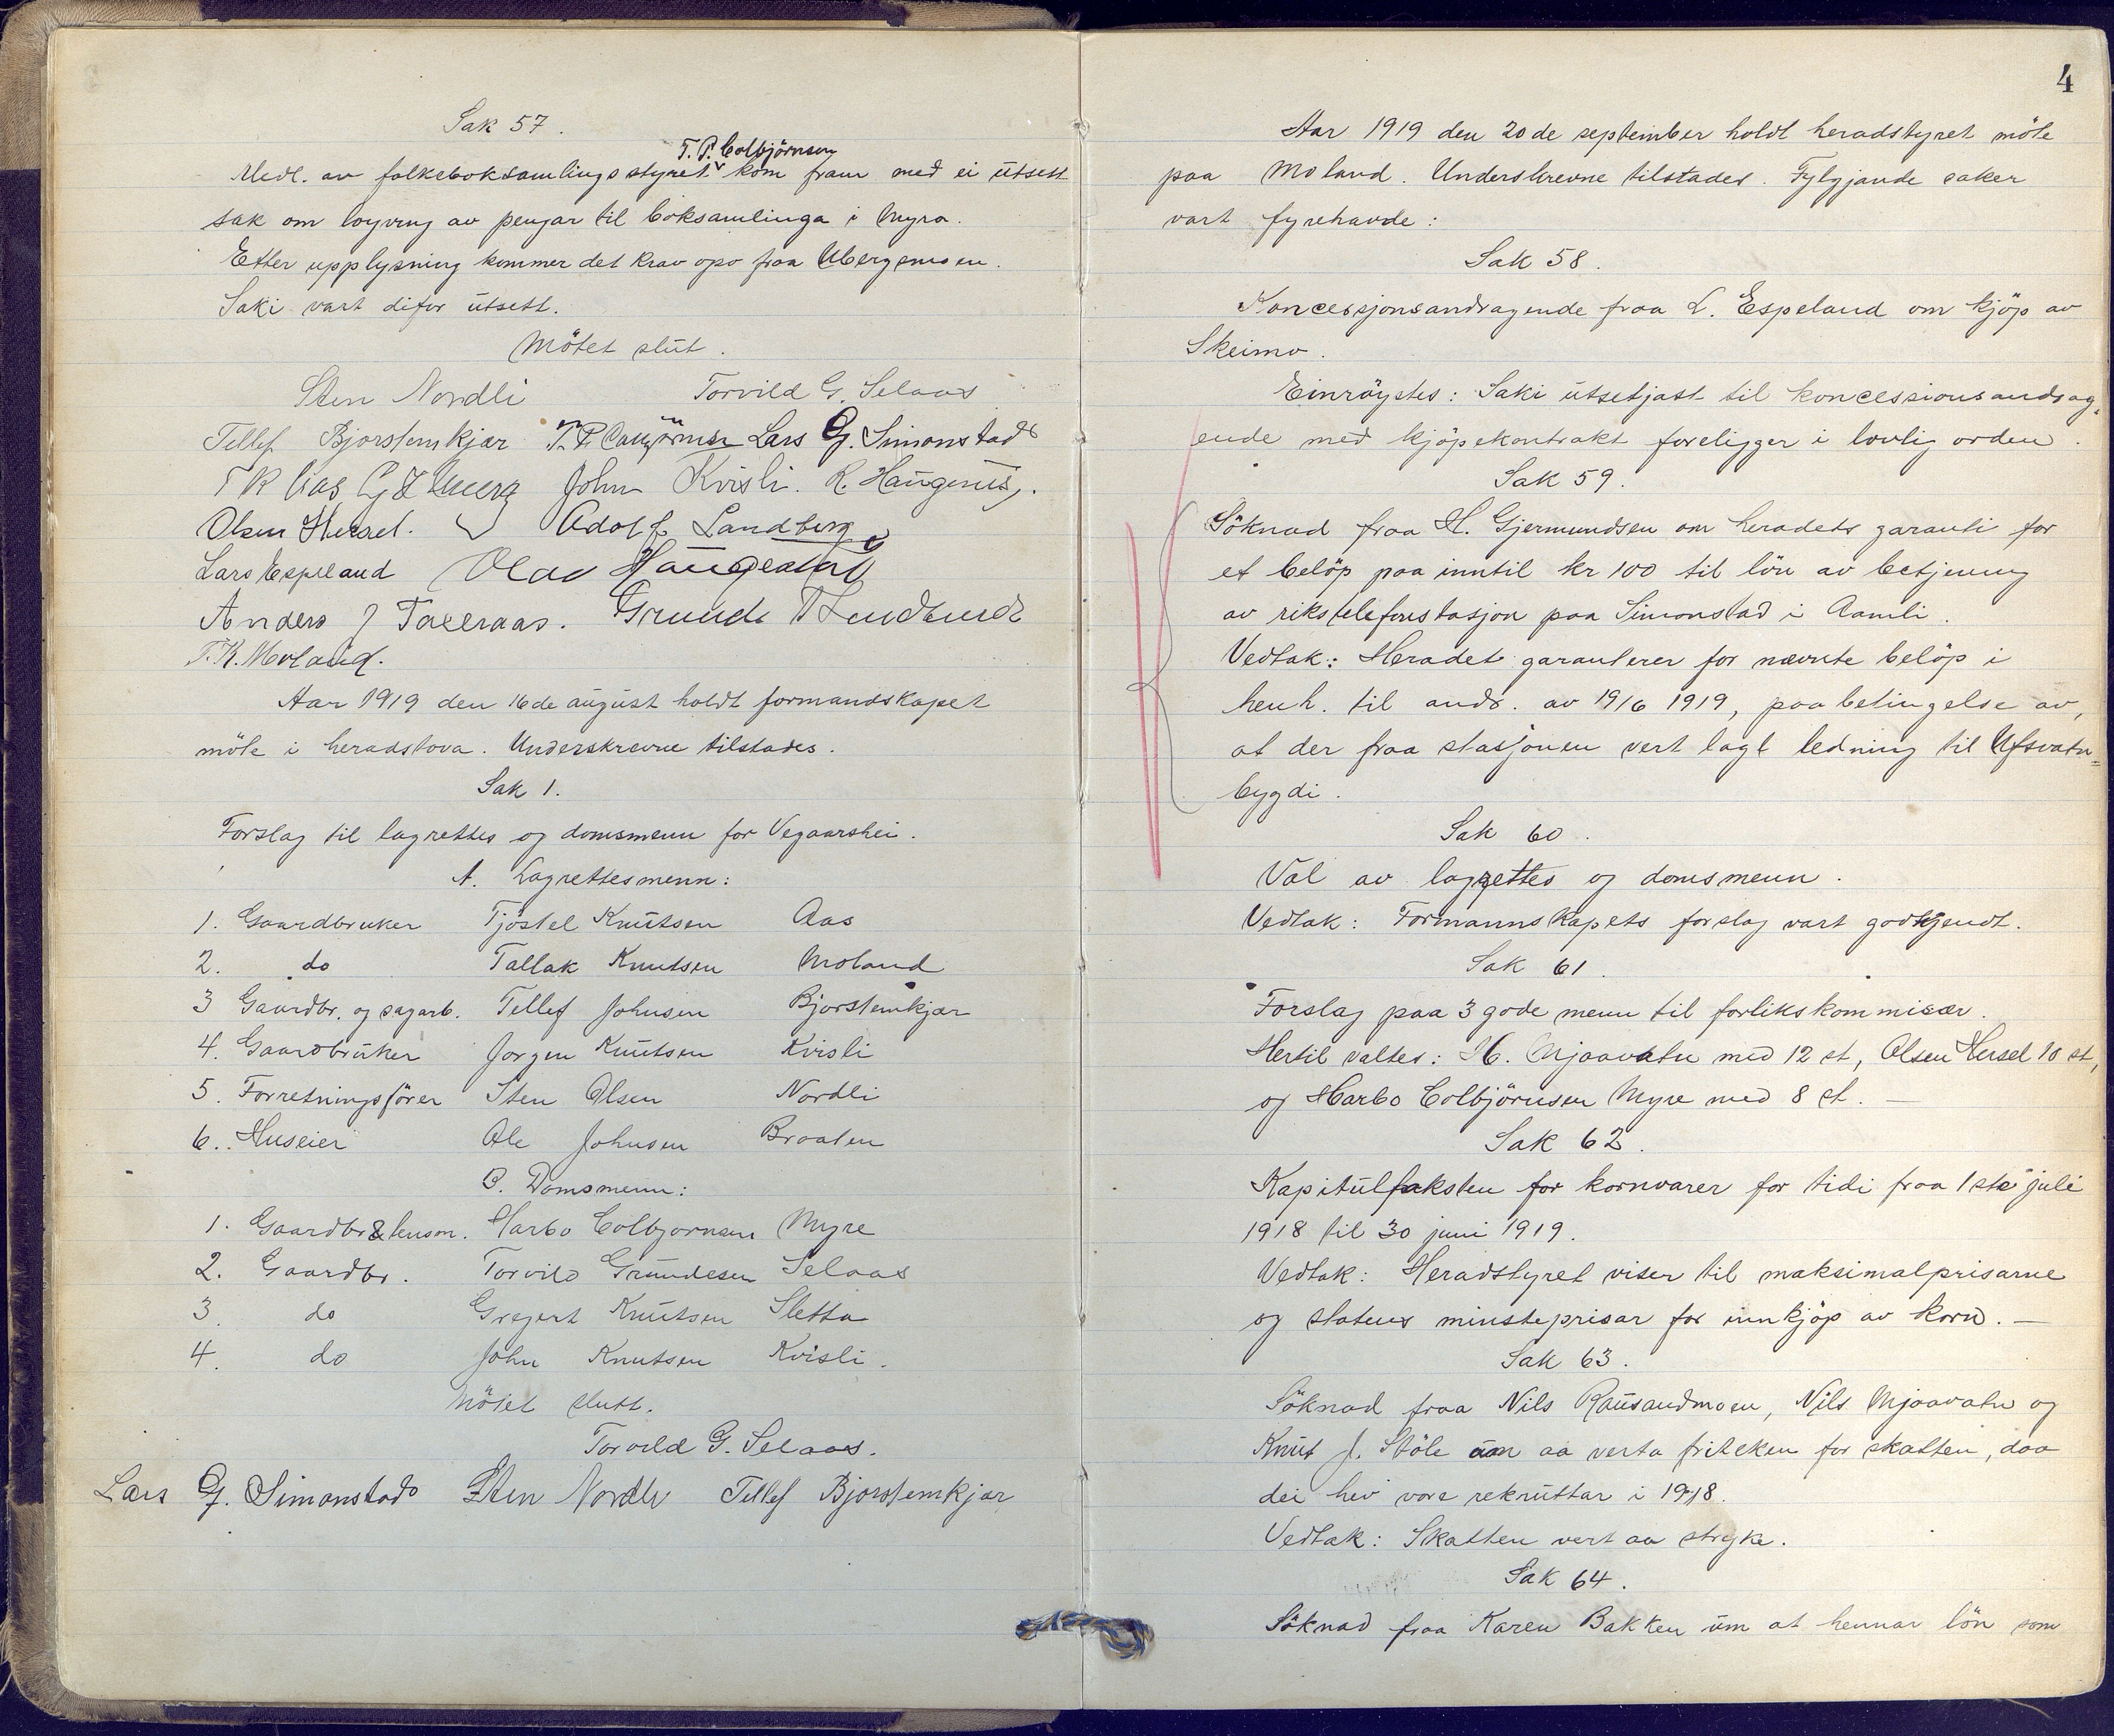 Sak 57.
T. P. Colbjörnsen
Medl. av folkeboksamlingsstyret kom fram med ei utsett
sak om löyving av pengar til boksamlinga i Myra.
Etter upplysning kommer det krav opo fraa Ubergsmoen.
Saki vart difor utsett.
Mötet slut.
Sten Nordli Torvild G. Selaas
Tellef Bjorstemkjær T. P. Lars G. Simonstad
T K Aas John Kvisli. K. Haugenes.
Olsen Hersel. Adolf Landberg
Lars Espeland Olav
Anders J Taxeraas. Grunde T Lindtveidt
T. K. Moland.
Aar 1919 den 16de august holdt formandskapet
möte i heradstova. Underskrevne tilstades.
Sak 1.
Forslag til lagrettes og domsmenn for Vegaarshei.
A. Lagrettesmenn:
1. Gaardbruker Tjöstel Knutsen Aas
2. do Tallak Knutsen Moland
3 Gaardbr. og sagarb. Tellef Johnsen Bjorstemkjær
4. Gaardbruker Jørgen Knutsen Kvisli
5. Forretningsförer Sten Olsen Nordli
6. Huseier Ole Johnsen Braaten
B. Domsmenn:
1. Gaardbr & lensm. Harbo Colbjornsen Myre
2. Gaardbr. Torvild Grundesen Selaas
3. do Gregert Knutsen Sletta
4. do John Knutsen Kvisli.
Mötet slutt.
Torvild G. Selaas.
Lars G. Simonstad Sten Nordli Tellef Bjorstemkjær
4
Aar 1919 den 20de september holdt heradstyret möte
paa Moland. Underskrevne tilstades. Fylgjande saker
vart fyrehavde:
Sak 58.
Koncessjonsandragende fraa L. Espeland om kjöp av
Skeimo.
Einröystes: Saki utsetjast til koncessionsandrag-
ende med kjöpekontrakt foreligger i lovlig orden.
Sak 59.
Söknad fraa H. Gjermundsen om heradets garanti for
et belöp paa inntil kr 100 til lön av betjening
av rikstelefonstasjon paa Simonstad i Aamli.
Vedtak: Heradet garanterer for nævnte belöp i
henh. til andr. av 19/6 1919, paa betingelse av,
at der fraa stasjonen vert lagt ledning til Ufsvatn=
bygdi.
Sak 60.
Val av lagrettes og domsmenn.
Vedtak: Formannskapets forslag vart godkjendt.
Sak 61.
Forslag paa 3 gode menn til forlikskommisær.
Hertil valtes: N. Mjaavatn med 12 st, Olsen Hersel 10 st,
og Harbo Colbjörnsen Myre med 8 st. —
Sak 62.
Kapitultaksten for kornvarer for tidi fraa 1ste juli
1918 til 30 juni 1919.
Vedtak: Heradstyret viser til maksimalprisarne
og statens minsteprisar for innkjöp av korn. —
Sak 63.
Söknad fraa Nils Rausandmoen, Nils Mjaavatn og
Knut J. Stöle um aa verta friteken for skatten, daa
dei hev vore rekruttar i 1918.
Vedtak: Skatten vert aa stryke.
Sak 64.
Söknad fraa Karen Bakken um at hennar lön som